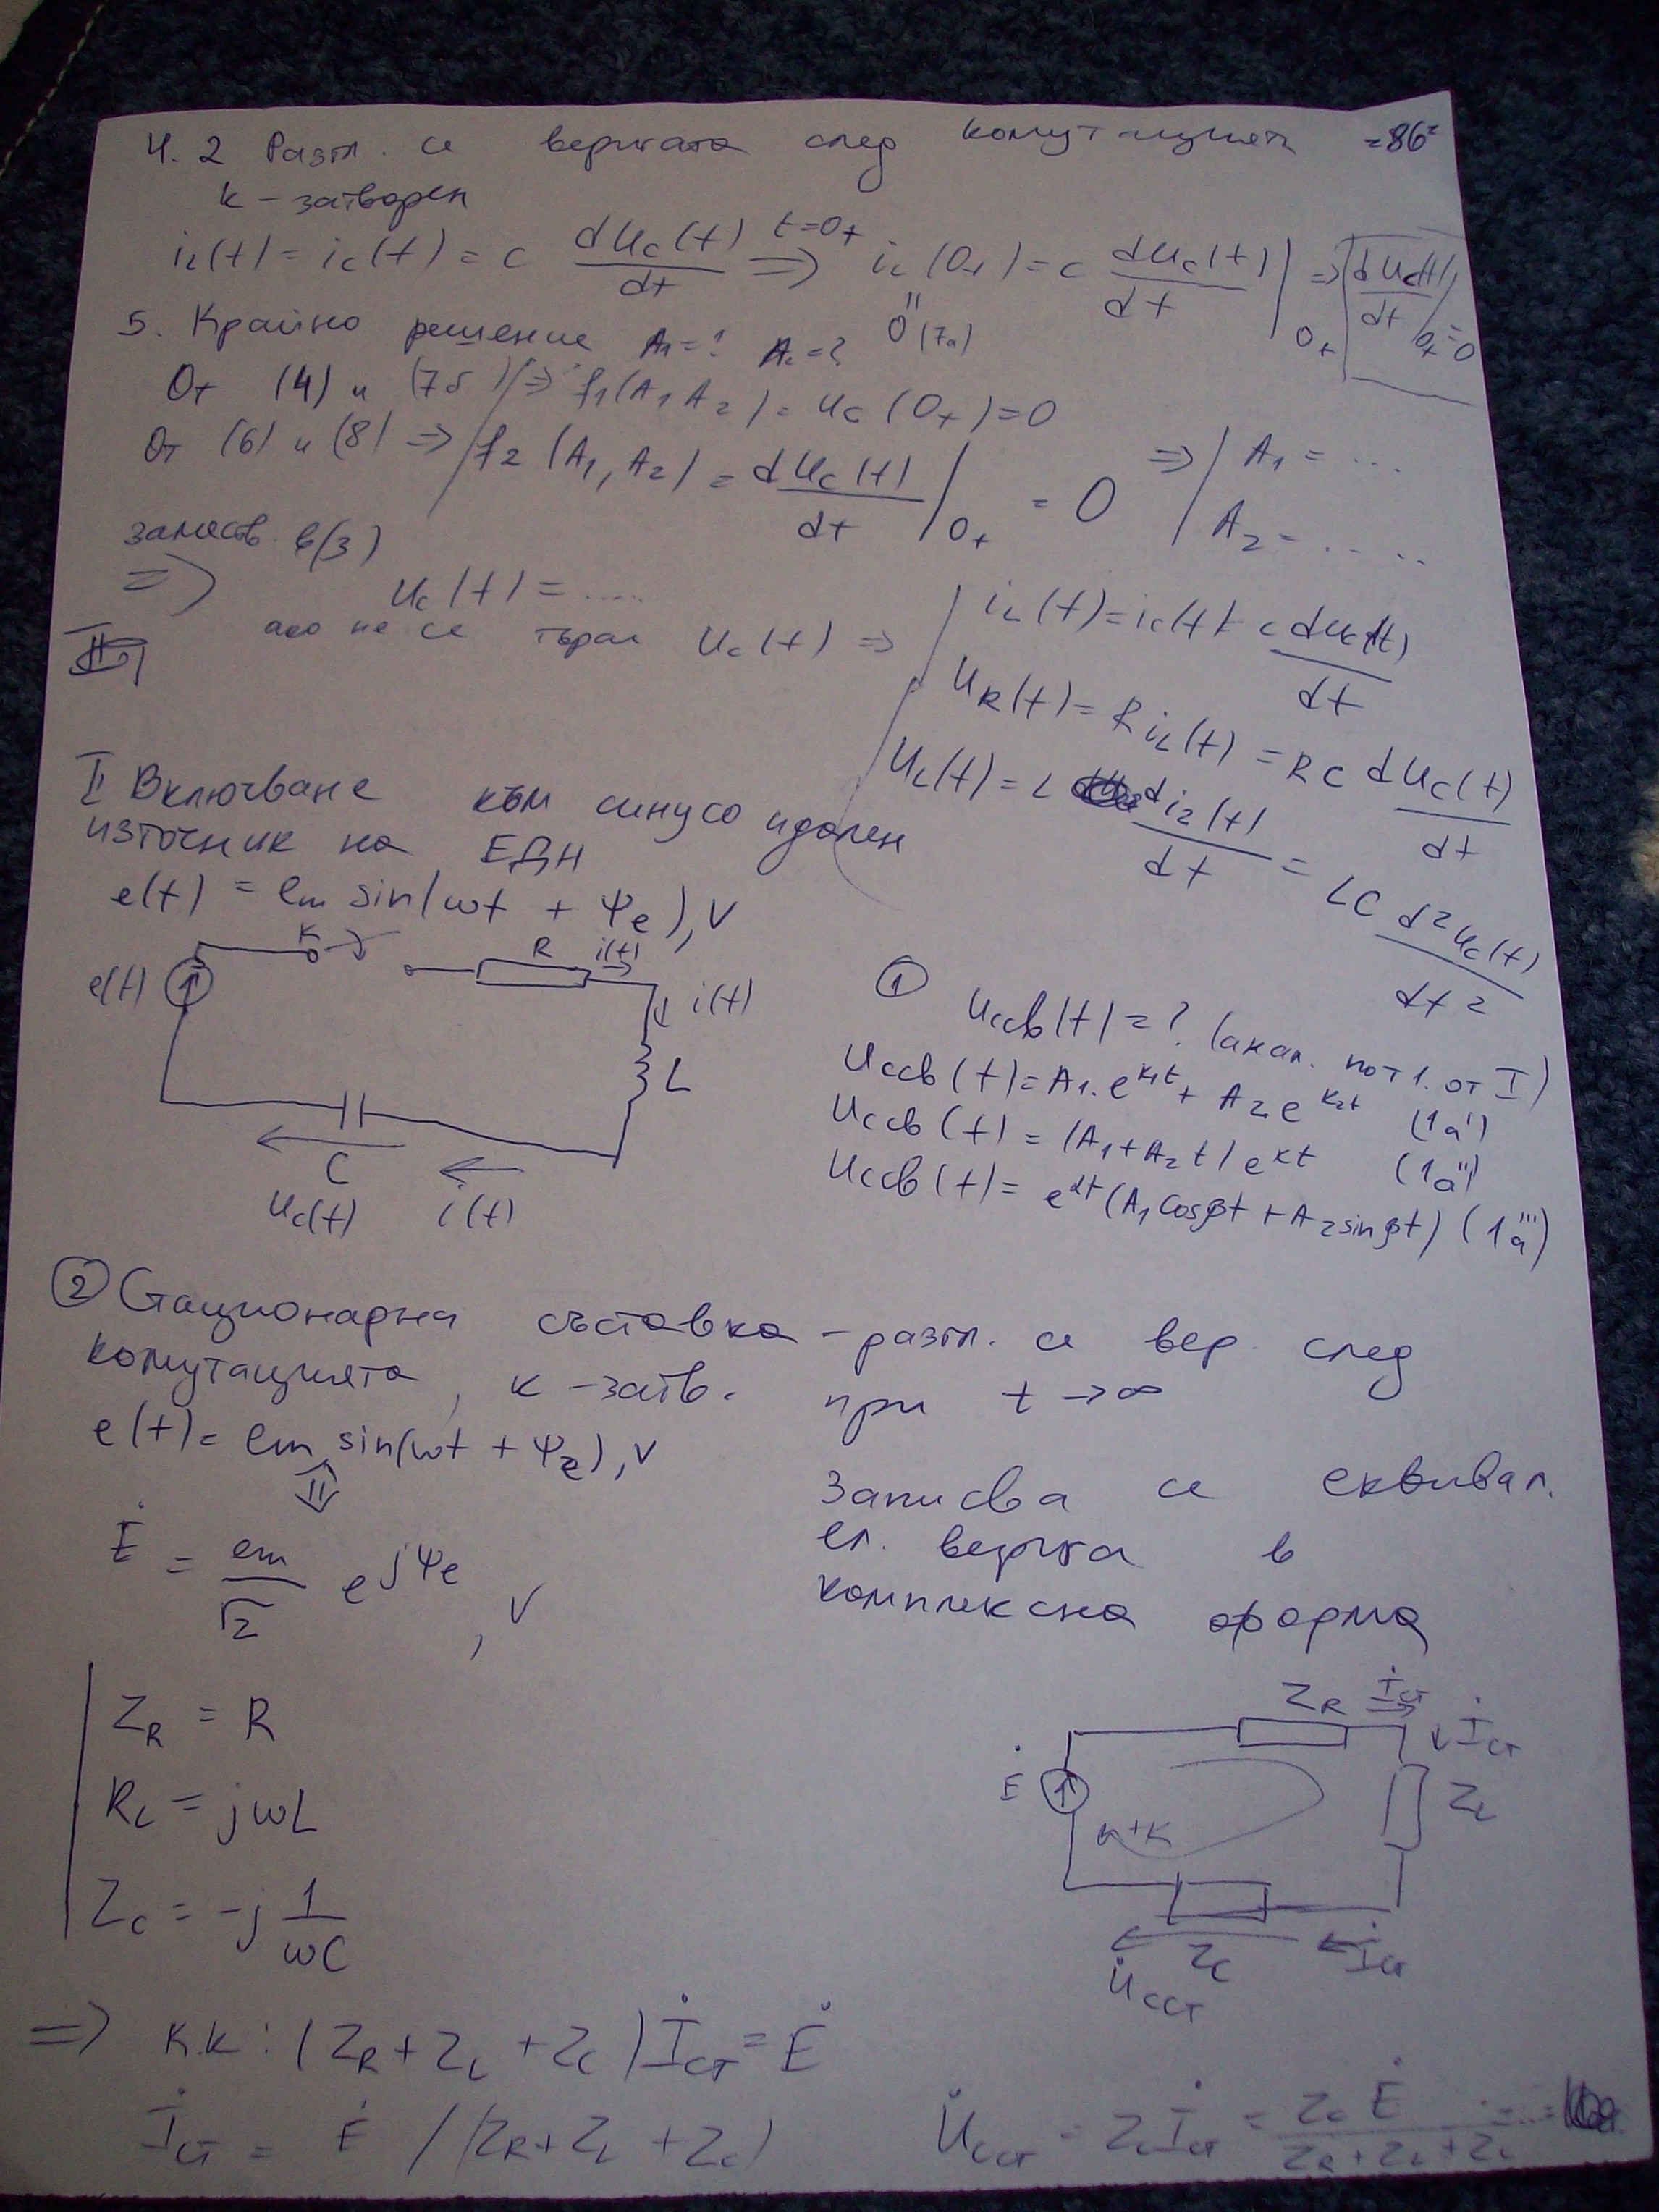 4.2 Разгл. се веригата след комутацията =86=
к - затворен
iL(t) = ic(t) = C duc(t)/dt t=0+ ⇒ iL(0+) = C duc(t)/dt |0+ ⇒ duc(t)/dt |0+ = 0
" 0 (7a)
5. Крайно решение A1=? A2=?
От (4) и (7б) ⇒ f1(A1 A2) = uc(0+) = 0
От (6) и (8) ⇒ f2(A1, A2) = duc(t)/dt |0+ = 0 ⇒ | A1 = ...
A2 = .....
заместв. в (3)
⇒ uc(t) = .....
ако не се търси uc(t) ⇒ | iL(t) = ic(t) = C duc(t)/dt
uR(t) = R iL(t) = RC duc(t)/dt
uL(t) = L diL(t)/dt = LC d²uc(t)/dt²
II Включване към синусоидален
източник на ЕДН
e(t) = em sin(ωt + Ψe), V
K R i(t)
e(t) i(t)
L
C
uc(t) i(t)
① uссв(t) = ? (анал. по т1. от I)
uссв(t) = A1.e^k1t + A2 e^k2t (1a')
uссв(t) = (A1 + A2 t) e^kt (1a'')
uссв(t) = e^αt (A1 cosβt + A2 sinβt) (1a''')
② Стационарна съставка - разгл. се вер. след
комутацията, к - затв. при t → ∞
e(t) = em sin(ωt + Ψe), V
⇕
Ė = em/√2 e^jΨe, V
Записва се еквивал.
ел. верига в
комплексна форма
ZR = R
RL = jωL
Zc = -j 1/ωC
ZR İст
İст
Ė ZL
к+к
Zc İст
U̇сст
⇒ к.к : (ZR + ZL + Zc) İст = Ė
İст = Ė / (ZR + ZL + Zc) U̇сст = Zc İст = Zc Ė / ZR + ZL + Zc = ... =